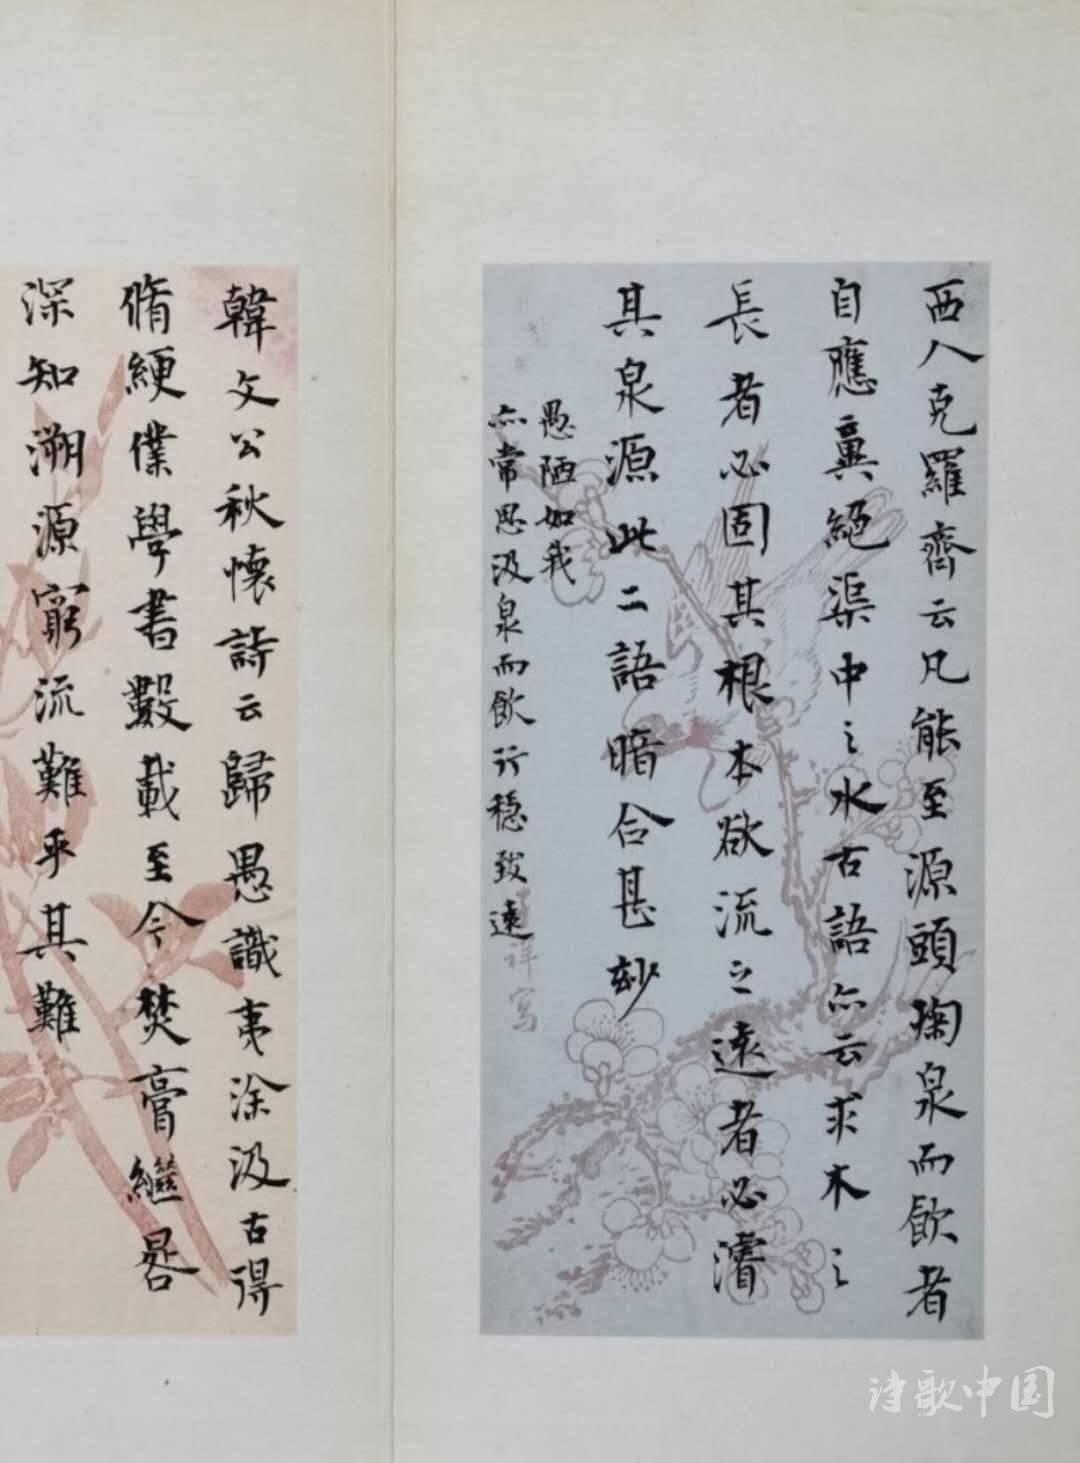 西人克羅齊云凡能至源頭掬泉而飲者
自應異絕渠中之水古語亦云求木之
長者必固其根本欲流之遠者必濬
其泉源此二語暗合甚妙
愚陋如我
亦常思汲泉而飲行穩致遠
祥寫
韓文公秋懷詩云歸愚識夷塗汲古得
脩綆僕學書數載至今焚膏繼晷
深知溯源窮流難乎其難
诗歌中国